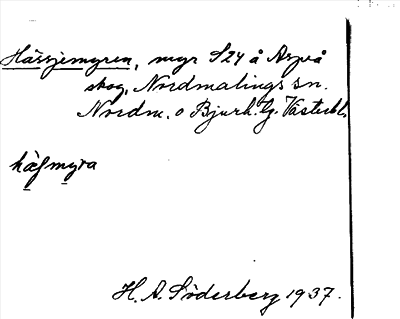 Hässjemyren, myr S24 å Aspeå
skog, Nordmalings sn.
Nordm. o Bjurh. tg. Västerbl.
hä̀ʃmyra
H. A. Söderberg 1937.